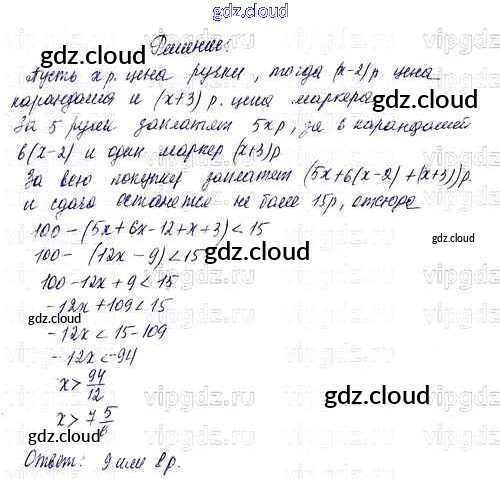 gdz.cloud
Решение:
Пусть x р. цена ручки, тогда (x-2) р. цена
карандаша и (x+3) р. цена маркера
За 5 ручек заплатят 5x р, за 6 карандашей
6(x-2) и один маркер (x+3)р
За всю покупку заплатят (5x+6(x-2)+(x+3))р.
и сдача останется не более 15р, отсюда
100-(5x+6x-12+x+3)<15
100-(12x-9)<15
100-12x+9<15
-12x+109<15
-12x<15-109
-12x<-94
x>94/12
x>7 5/6
Ответ: 9 или 8р.
gdz.cloud
gdz.cloud
gdz.cloud
gdz.cloud
gdz.cloud
gdz.cloud
gdz.cloud
gdz.cloud
gdz.cloud
vipgdz.ru